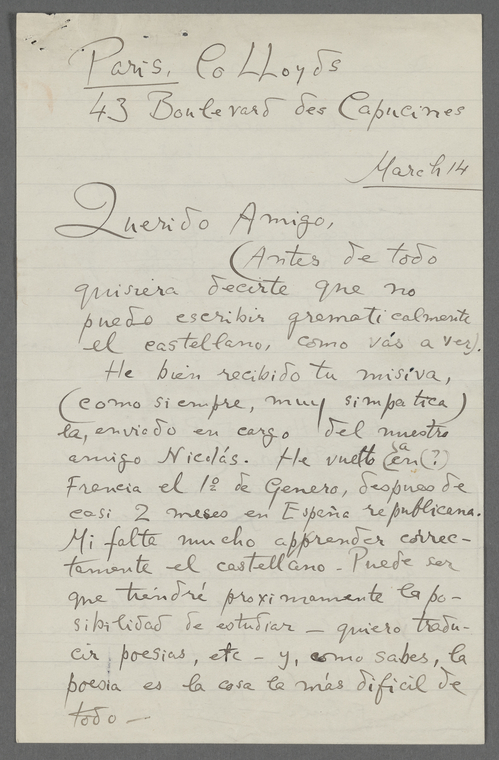 Paris, Co LLoyds
43 Boulevard des Capucines
March 14
Querido Amigo,
(Antes de todo
quisiera decirte que no
puedo escribir grematicalmente
el castellano, como vás a ver).
He bien recibido tu misiva,
(como siempre, muy simpatica)
la, enviado en cargo del nuestro
amigo Nicolás. He vuelto en (?)
a
Francia el 1º de Genero, despues de
casi 2 meses en España republicana.
Mi falta mucho apprender correc-
tamente el castellano - Puede ser
que tiendré proximamente la po-
sibilidad de estudiar - quiero tradu-
cir poesias, etc - y, como sabes, la
poesia es la cosa la más dificil de
todo -